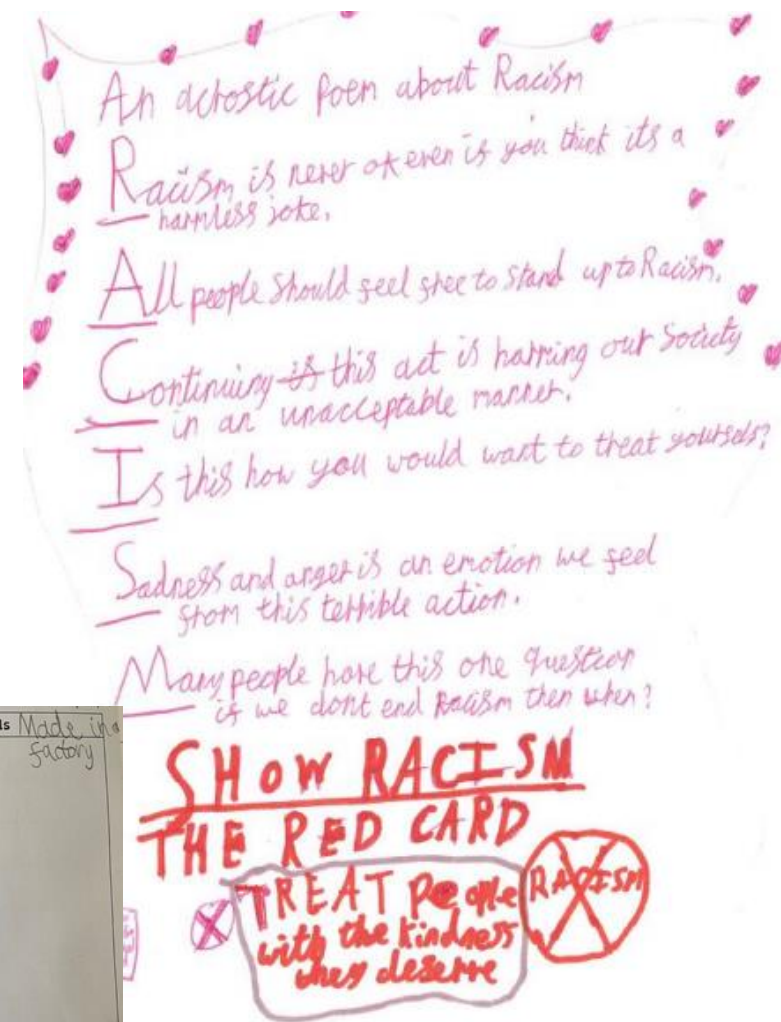 An acrostic poem about Racism
Racism is never ok even if you think its a
harmless joke.
All people should feel free to stand up to Racism.
Continuing if this act is harming our Society
in an unacceptable manner.
Is this how you would want to treat yourself?
Sadness and anger is an emotion we feel
from this terrible action.
Many people have this one question
if we dont end Racism then when?
SHOW RACISM
THE RED CARD
TREAT people
with the kindness
they deserve
RACISM
ls Made in a
factory